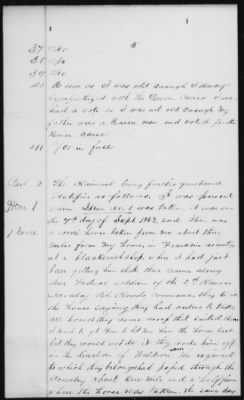 5
37 No
38 No
39 No
40 As soon as I was old enough I always
sympathized with the Union cause &
had a vote as I was not old enough. My
father was a Union man and voted for the
Union cause
41 Yes in full
The Claimant being further questioned
testified as follows. I was present
when Item No 1 was taken, it was on
the 7th day of Sept 1863, and There was
a sorrel horse taken from me about three
miles from My home, in Franklin County
at a blacksmith shop where I had just
been getting him shod. There came along
some Federal soldiers of the 2nd Kansas
Cavalry Col. Cloud commanding & took
the horse saying they had orders to take
all horses they came across that suited them
I tried to get them to let me have the horse back
but they would not do it they rode him off
in the direction of The regiment
to which they belonged had passed through the
country about one mile and a half from
where the horse was taken the same day
Item 1
1 horse